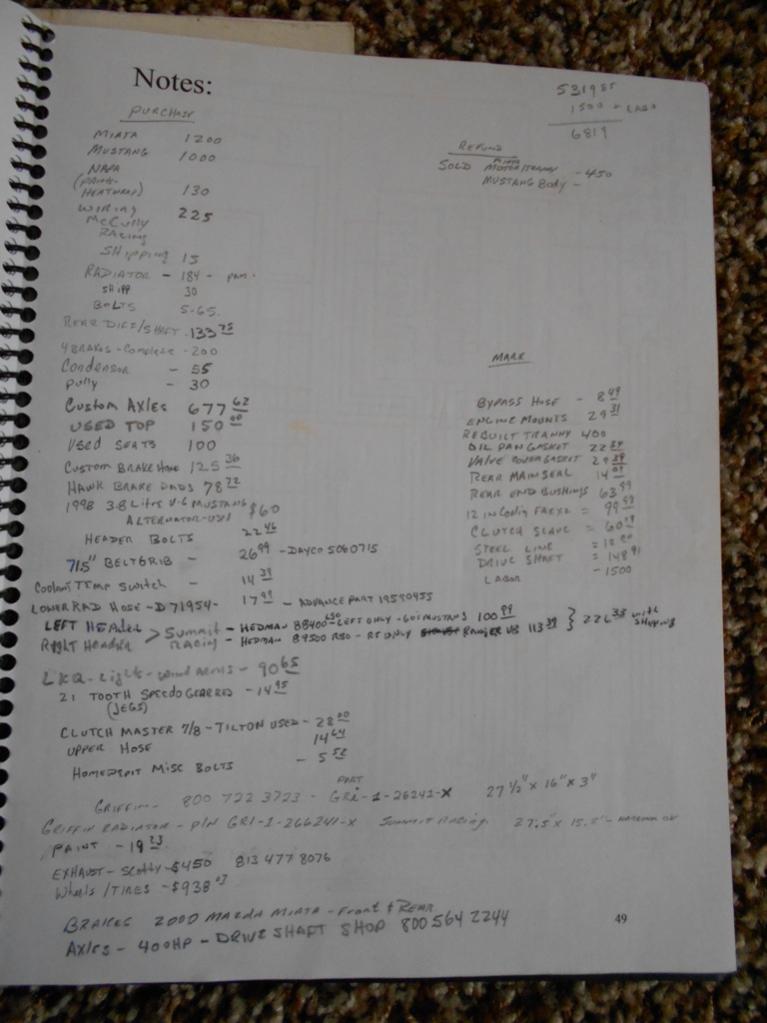 Notes:
PURCHASE
MIATA 1200
MUSTANG 1000
NAPA
130
WIRING 225
McCully
RACING
SHIPPING 15
RADIATOR - 184 -
SHIPP 30
BOLTS 5.65
REAR DISC/SHAFT 133 75
4 BRAKES - Complete - 200
Condensor - 55
Pully - 30
Custom AXLES 677 62
USED TOP 150 00
USED SEATS 100
CUSTOM BRAKE HOSE 125 36
HAWK BRAKE PADS 78 72
1998 3.8 Litre V-6 MUSTANG
ALTERNATOR-USED $60
HEADER BOLTS 22 46
71.5" BELT 6 RIB - 26 99 - DAYCO 5060715
Coolant TEMP SWITCH - 14 39
LOWER RAD HOSE - D71954 - 17 99 - ADVANCE PART 19590455
LEFT HEADER > SUMMIT - HEDMAN 88400 - LEFT ONLY - MUSTANG 100 99 } 226 33 with
RIGHT HEADER RACING - HEDMAN 89500 - RT ONLY RANGER V8 113 39 SHIPPING
LKQ - Lights - WIND ARMS - 90 65
21 TOOTH SPEEDO GEAR RED - 14 95
(JEGS)
CLUTCH MASTER 7/8 - TILTON USED - 28 00
UPPER HOSE 14 64
HOMEDEPOT MISC BOLTS - 5 52
PART
GRIFFIN - 800 722 3723 - GRI-1-26241-X 27 1/2" x 16" x 3"
GRIFFIN RADIATOR - P/N GRI-1-266241-X SUMMIT RACING 27.5" x 15.5" -
PAINT - 19 23
EXHAUST - SCOTTY - $450 813 477 8076
Wheels/TIRES - $938 03
BRAKES 2000 MAZDA MIATA - Front & REAR
AXLES - 400HP - DRIVE SHAFT SHOP 800 564 2244
5319 85
1500 - LABO
6819
REFUND
MIATA
SOLD MOTOR/TRANNY - 450
MUSTANG BODY -
MARK
BYPASS HOSE - 8 49
ENGINE MOUNTS 29 31
REBUILT TRANNY 400
OIL PAN GASKET 22 34
VALVE COVER GASKET 29 39
REAR MAIN SEAL 14 09
REAR END BUSHINGS 63 99
12 IN = 99 99
CLUTCH SLAVE = 60 19
STEEL LINE = 12 00
DRIVE SHAFT = 148 91
LABOR - 1500
49